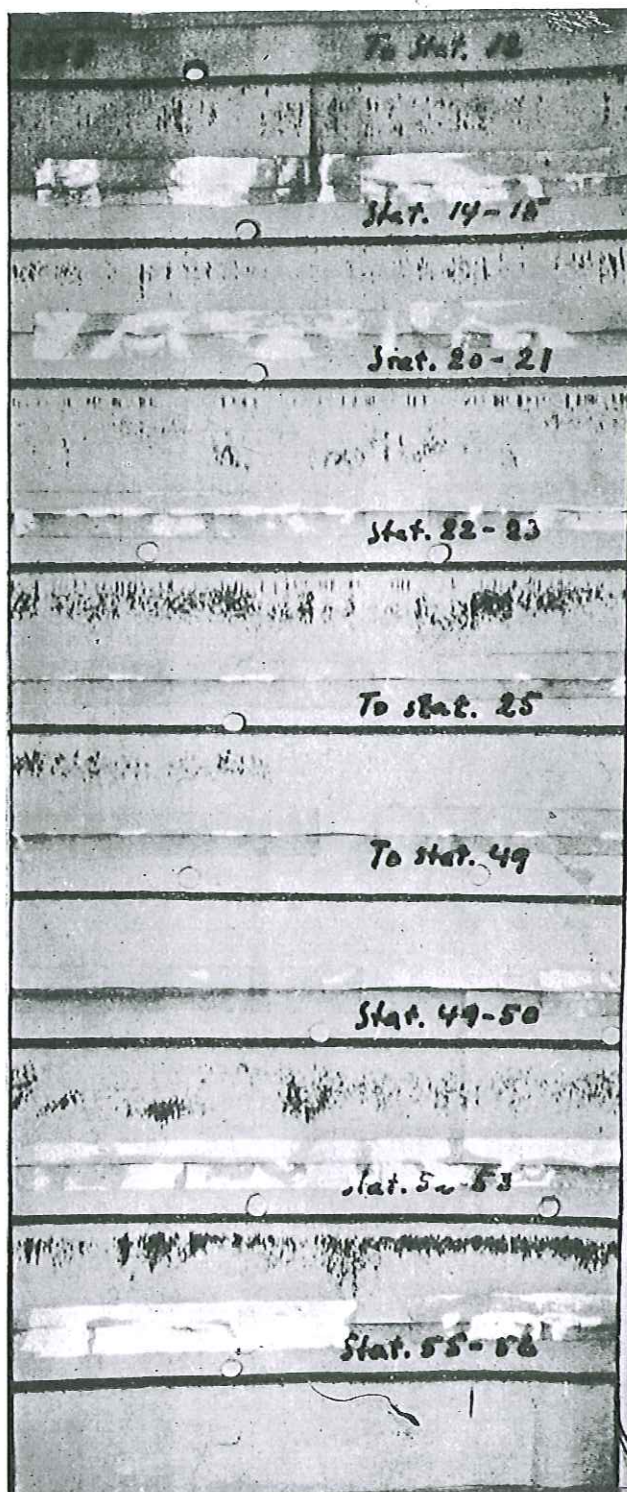 To Stat. 12
Stat. 14-15
Stat. 20-21
Stat. 22-23
To stat. 25
To stat. 49
Stat. 49-50
Stat. 55-56